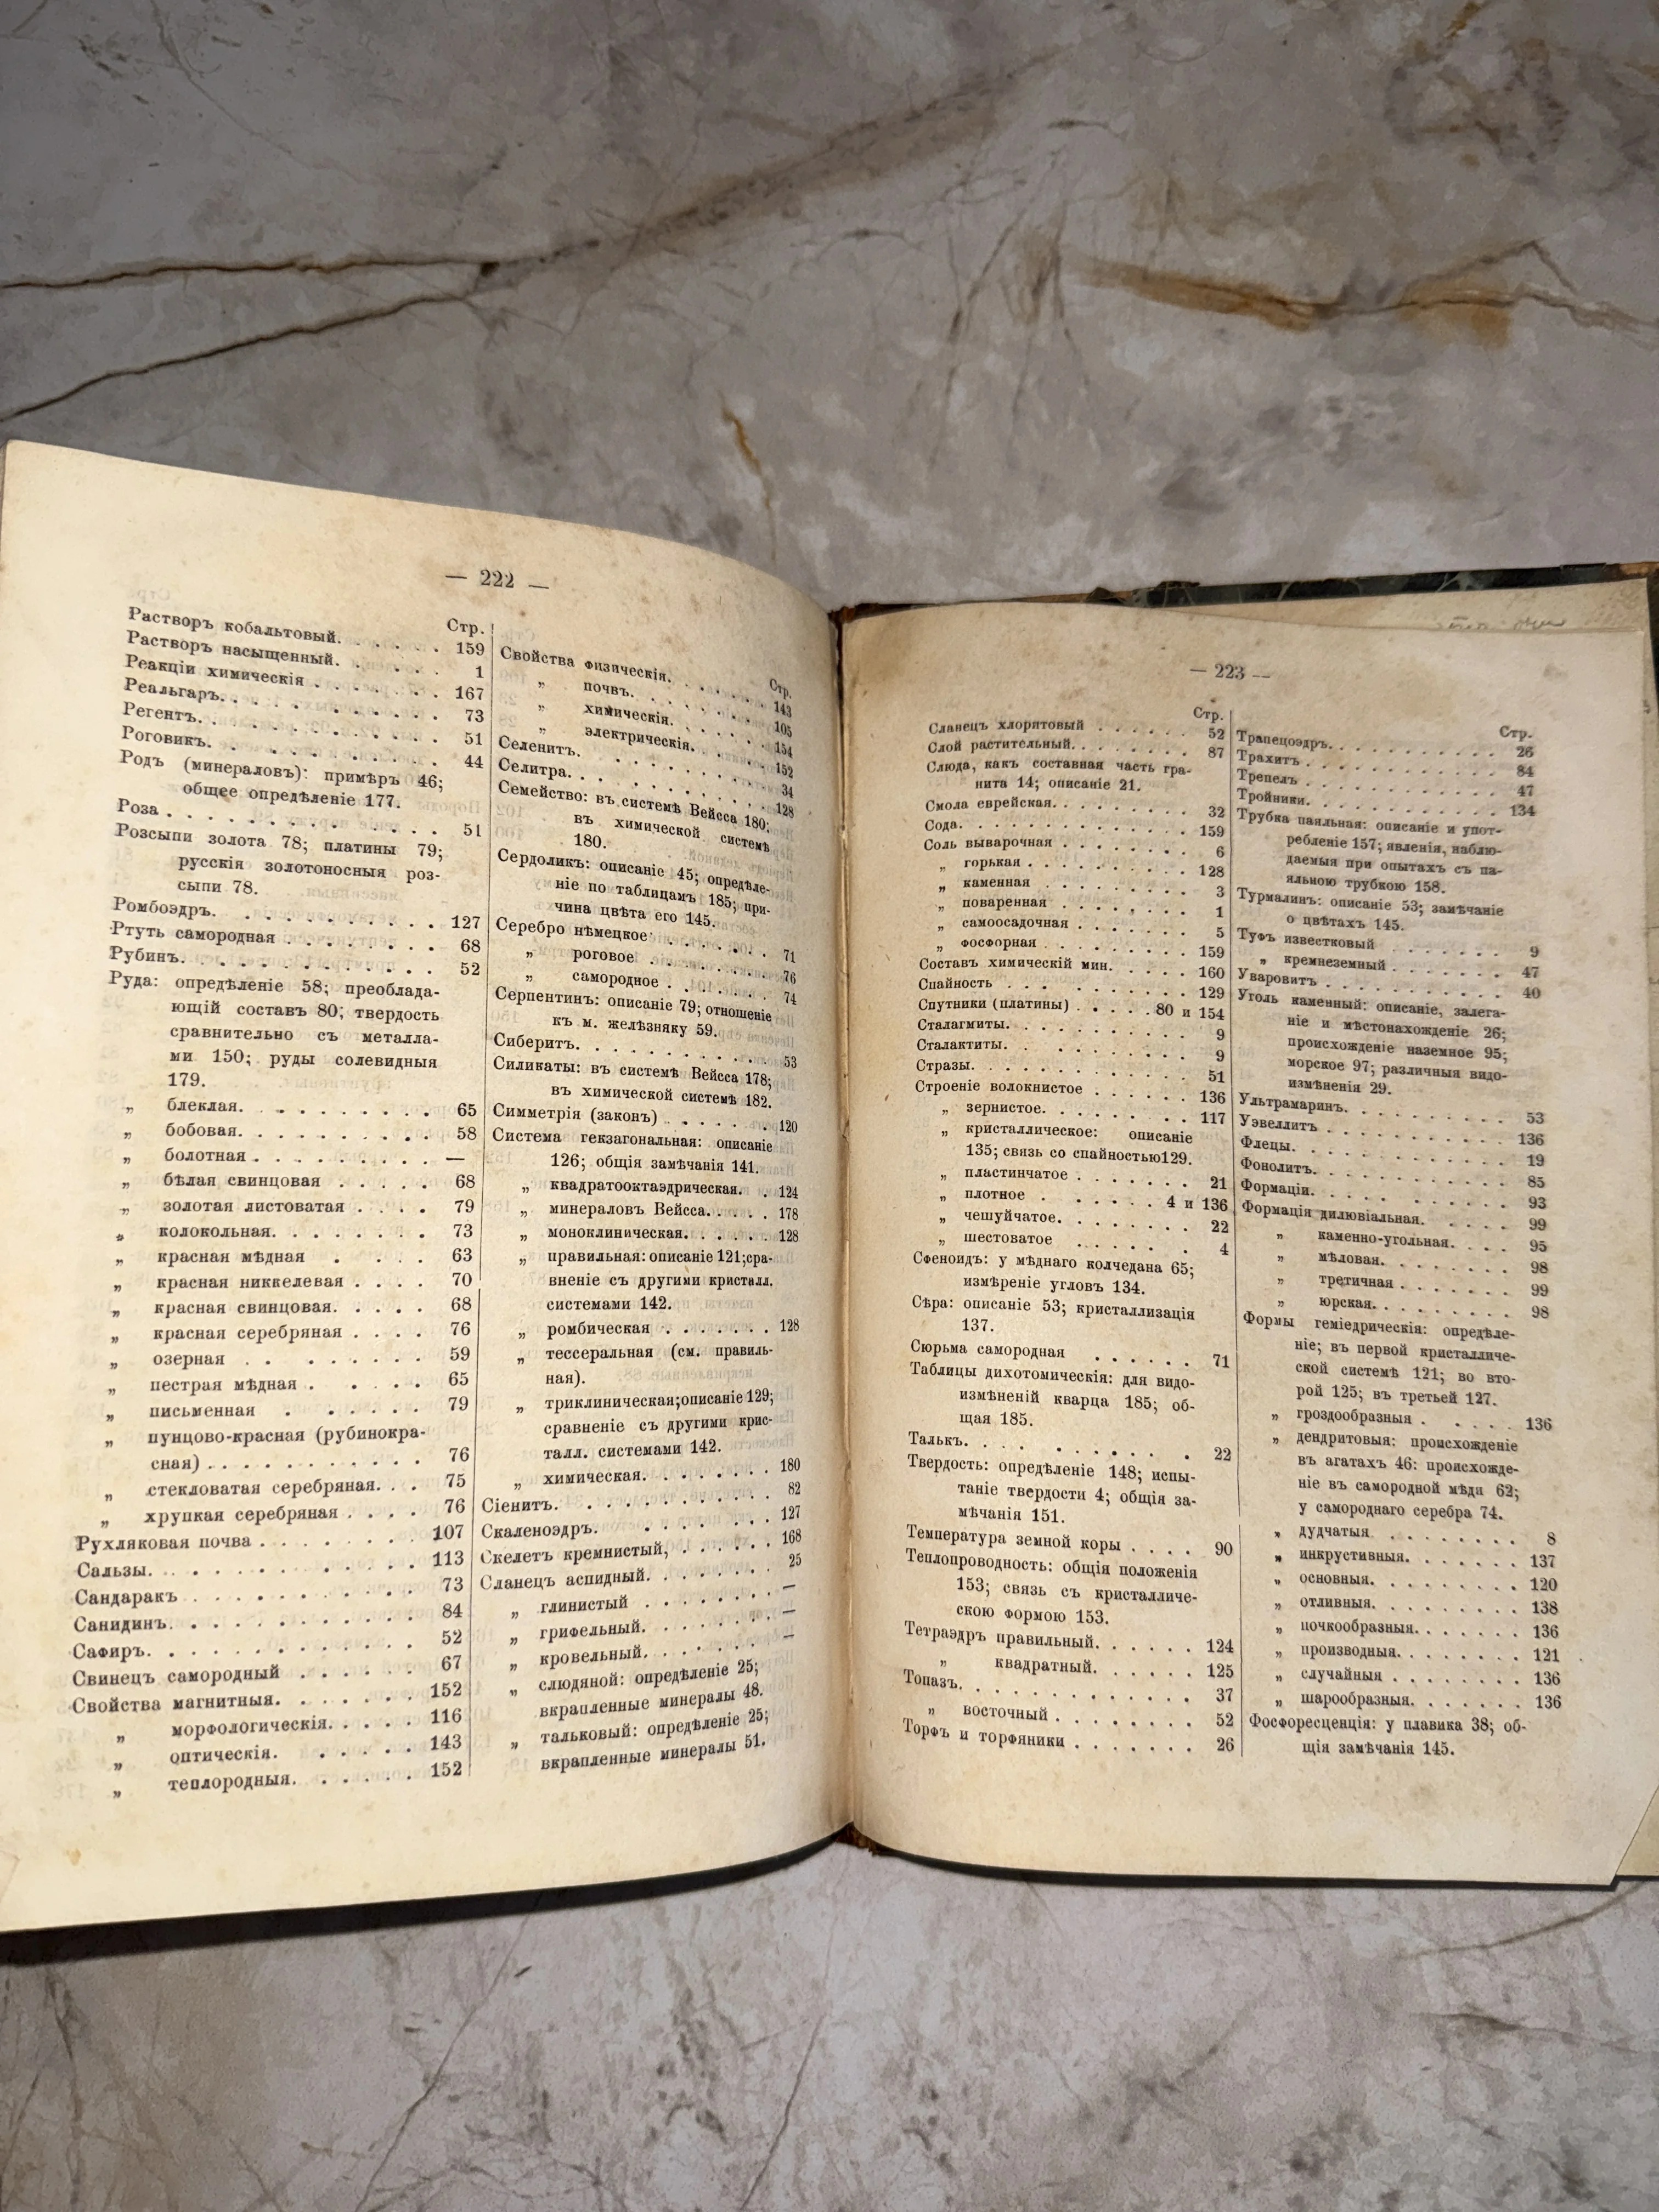 — 222 —
Стр.
Растворъ кобальтовый. . . . . . 159
Растворъ насыщенный. . . . . . 1
Реакціи химическія . . . . . . . 167
Реальгаръ. . . . . . . . . . 73
Регентъ. . . . . . . . . . . 51
Роговикъ. . . . . . . . . . 44
Родъ (минераловъ): примѣръ 46;
общее опредѣленіе 177.
Роза . . . . . . . . . . . 51
Розсыпи золота 78; платины 79;
русскія золотоносныя роз-
сыпи 78.
Ромбоэдръ. . . . . . . . . . 127
Ртуть самородная . . . . . . . 68
Рубинъ. . . . . . . . . . . 52
Руда: опредѣленіе 58; преоблада-
ющій составъ 80; твердость
сравнительно съ металла-
ми 150; руды солевидныя
179.
„ блеклая. . . . . . . . . 65
„ бобовая. . . . . . . . . 58
„ болотная . . . . . . . . . —
„ бѣлая свинцовая . . . . . 68
„ золотая листоватая . . . . 79
„ колокольная. . . . . . . 73
„ красная мѣдная . . . . 63
„ красная никкелевая . . . . 70
„ красная свинцовая. . . . . 68
„ красная серебряная . . . . 76
„ озерная . . . . . . . . 59
„ пестрая мѣдная . . . . . 65
„ письменная . . . . . . 79
„ пунцово-красная (рубинокра-
сная) . . . . . . . . . . . 76
„ стекловатая серебряная. . . 75
„ хрупкая серебряная . . . . 76
Рухляковая почва . . . . . . . . 107
Сальзы. . . . . . . . . . . 113
Сандаракъ . . . . . . . . . . 73
Санидинъ. . . . . . . . . . . 84
Сафиръ. . . . . . . . . . . 52
Свинецъ самородный . . . . . . 67
Свойства магнитныя. . . . . . . 152
„ морфологическія. . . . . 116
„ оптическія. . . . . . 143
„ теплородныя. . . . . . 152
Стр.
Свойства физическія. . . . . . 143
„ почвъ. . . . . . . 105
„ химическія. . . . . 154
„ электрическія. . . . . 152
Селенитъ. . . . . . . . . . 34
Селитра. . . . . . . . . . 128
Семейство: въ системѣ Вейсса 180;
въ химической системѣ
180.
Сердоликъ: описаніе 45; опредѣле-
ніе по таблицамъ 185; при-
чина цвѣта его 145.
Серебро нѣмецкое . . . . . . . 71
„ роговое . . . . . . . . 76
„ самородное . . . . . . . 74
Серпентинъ: описаніе 79; отношеніе
къ м. желѣзняку 59.
Сиберитъ. . . . . . . . . . 53
Силикаты: въ системѣ Вейсса 178;
въ химической системѣ 182.
Симметрія (законъ) . . . . . . . 120
Система гекзагональная: описаніе
126; общія замѣчанія 141.
„ квадратооктаэдрическая. . 124
„ минераловъ Вейсса. . . . . 178
„ моноклиническая. . . . . . 128
„ правильная: описаніе 121;сра-
вненіе съ другими кристалл.
системами 142.
„ ромбическая . . . . . . . 128
„ тессеральная (см. правиль-
ная).
„ триклиническая;описаніе 129;
сравненіе съ другими крис-
талл. системами 142.
„ химическая. . . . . . . 180
Сіенитъ. . . . . . . . . . . 82
Скаленоэдръ. . . . . . . . . 127
Скелетъ кремнистый, . . . . . . 168
Сланецъ аспидный. . . . . . . 25
„ глинистый . . . . . . . . —
„ грифельный. . . . . . . —
„ кровельный. . . . . . . —
„ слюдяной: опредѣленіе 25;
вкрапленные минералы 48.
„ тальковый: опредѣленіе 25;
вкрапленные минералы 51.
— 223 —
Стр.
Сланецъ хлоритовый . . . . . . 52
Слой растительный. . . . . . . 87
Слюда, какъ составная часть гра-
нита 14; описаніе 21.
Смола еврейская. . . . . . . . 32
Сода. . . . . . . . . . . . 159
Соль выварочная . . . . . . . . 6
„ горькая . . . . . . . . . 128
„ каменная . . . . . . . . 3
„ поваренная . . . . . . . 1
„ самоосадочная . . . . . . . 5
„ фосфорная . . . . . . . . 159
Составъ химическій мин. . . . . 160
Спайность . . . . . . . . . . 129
Спутники (платины) . . . . . 80 и 154
Сталагмиты. . . . . . . . . . 9
Сталактиты. . . . . . . . . . 9
Стразы. . . . . . . . . . . 51
Строеніе волокнистое . . . . . . 136
„ зернистое. . . . . . . . 117
„ кристаллическое: описаніе
135; связь со спайностью129.
„ пластинчатое . . . . . . . 21
„ плотное . . . . . . 4 и 136
„ чешуйчатое. . . . . . . 22
„ шестоватое . . . . . . 4
Сфеноидъ: у мѣднаго колчедана 65;
измѣреніе угловъ 134.
Сѣра: описаніе 53; кристаллизація
137.
Сюрьма самородная . . . . . . 71
Таблицы дихотомическія: для видо-
измѣненій кварца 185; об-
щая 185.
Талькъ. . . . . . . . . . . 22
Твердость: опредѣленіе 148; испы-
таніе твердости 4; общія за-
мѣчанія 151.
Температура земной коры . . . . 90
Теплопроводность: общія положенія
153; связь съ кристалличе-
скою формою 153.
Тетраэдръ правильный. . . . . . 124
„ квадратный. . . . . . 125
Топазъ. . . . . . . . . . . 37
„ восточный . . . . . . . . 52
Торфъ и торфяники . . . . . . . 26
Стр.
Трапецоэдръ. . . . . . . . . . 26
Трахитъ . . . . . . . . . . . 84
Трепелъ . . . . . . . . . . . 47
Тройники. . . . . . . . . . . 134
Трубка паяльная: описаніе и упот-
ребленіе 157; явленія, наблю-
даемыя при опытахъ съ па-
яльною трубкою 158.
Турмалинъ: описаніе 53; замѣчаніе
о цвѣтахъ 145.
Туфъ известковый . . . . . . . 9
„ кремнеземный . . . . . . . 47
Уваровитъ . . . . . . . . . . 40
Уголь каменный: описаніе, залега-
ніе и мѣстонахожденіе 26;
происхожденіе наземное 95;
морское 97; различныя видо-
измѣненія 29.
Ультрамаринъ. . . . . . . . . 53
Уэвеллитъ . . . . . . . . . . 136
Флецы. . . . . . . . . . . 19
Фонолитъ. . . . . . . . . . 85
Формаціи. . . . . . . . . . 93
Формація дилювіальная. . . . . 99
„ каменно-угольная. . . . 95
„ мѣловая. . . . . . . . 98
„ третичная . . . . . . . 99
„ юрская. . . . . . . . 98
Формы геміедрическія: опредѣле-
ніе; въ первой кристалличе-
ской системѣ 121; во вто-
рой 125; въ третьей 127.
„ гроздообразныя . . . . . 136
„ дендритовыя: происхожденіе
въ агатахъ 46: происхожде-
ніе въ самородной мѣди 62;
у самороднаго серебра 74.
„ дудчатыя . . . . . . . 8
„ инкрустивныя. . . . . . . 137
„ основныя. . . . . . . . 120
„ отливныя. . . . . . . . 138
„ почкообразныя. . . . . . . 136
„ производныя. . . . . . . 121
„ случайныя . . . . . . . 136
„ шарообразныя. . . . . . . 136
Фосфоресценція: у плавика 38; об-
щія замѣчанія 145.